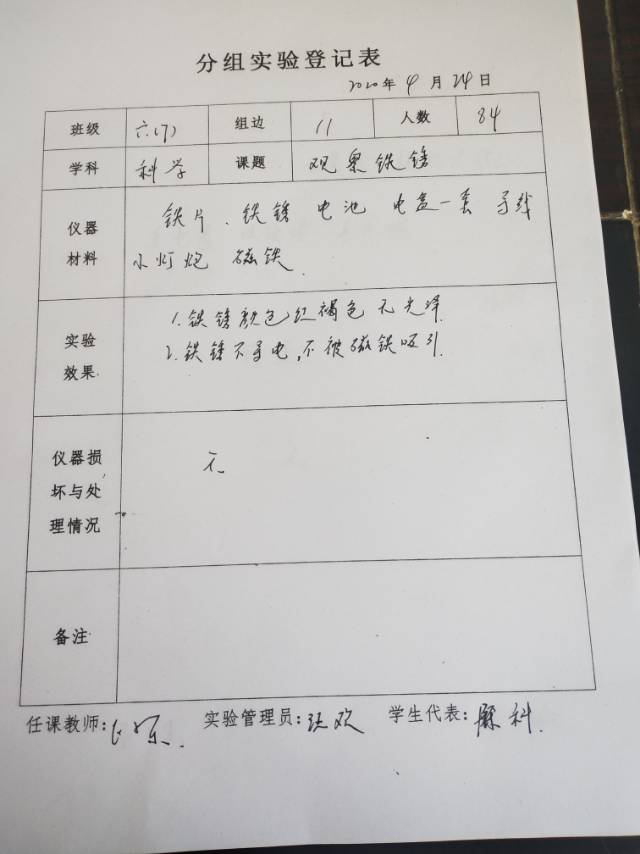 分组实验登记表
2020年4月24日
班级 六.(7) 组边 11 人数 84
学科 科学 课题 观察铁锈
仪器 铁片、铁锈 电池 电盒一套 导线
材料 小灯炮 磁铁.
1.铁锈颜色红褐色 无光泽.
实验 2.铁锈不导电,不被磁铁吸引.
效果
仪器损 无
坏与处
理情况
备注
任课教师: 实验管理员:张欢 学生代表: 科.